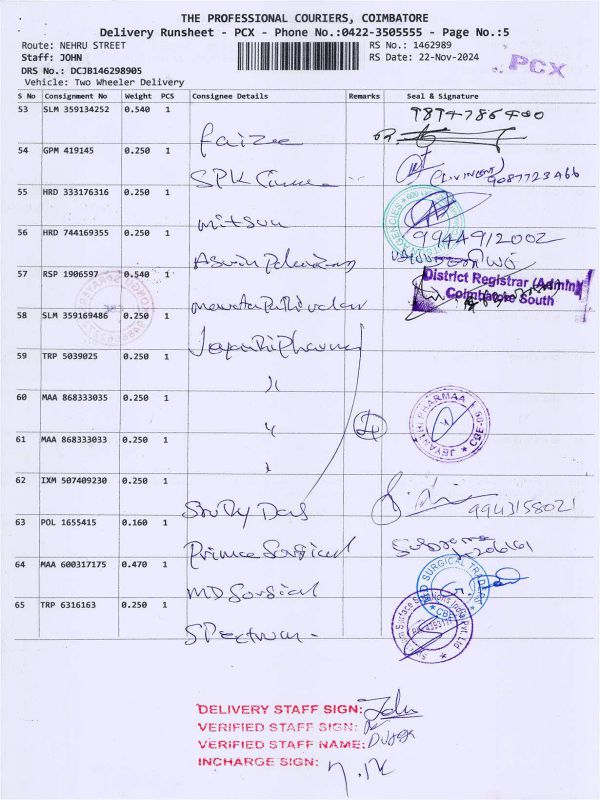 THE PROFESSIONAL COURIERS, COIMBATORE
Delivery Runsheet - PCX - Phone No.:0422-3505555 - Page No.:5
Route: NEHRU STREET
RS No.: 1462989
Staff: JOHN
RS Date: 22-Nov-2024
PCX
DRS No.: DCJB146298905
Vehicle: Two Wheeler Delivery
S No Consignment No Weight PCS Consignee Details Remarks Seal & Signature
53 SLM 359134252 0.540 1
9894786400
faizee
54 GPM 419145 0.250 1
9087723466
SPK
55 HRD 333176316 0.250 1
mitsuu
56 HRD 744169355 0.250 1
9944912002
Aswin
57 RSP 1906597 0.540 1
District Registrar (Admin)
Coimbatore South
58 SLM 359169486 0.250 1
Jeyanthi Pharma
59 TRP 5039025 0.250 1
60 MAA 868333035 0.250 1
JEYANTHI PHARMAA CBE-09
61 MAA 868333033 0.250 1
62 IXM 507409230 0.250 1
9943158021
63 POL 1655415 0.160 1
Prince Surgical
64 MAA 600317175 0.470 1
MD Surgical
MD SURGICAL TRADERS
CBE
65 TRP 6316163 0.250 1
Spectrum -
DELIVERY STAFF SIGN: John
VERIFIED STAFF SIGN:
VERIFIED STAFF NAME:
INCHARGE SIGN: